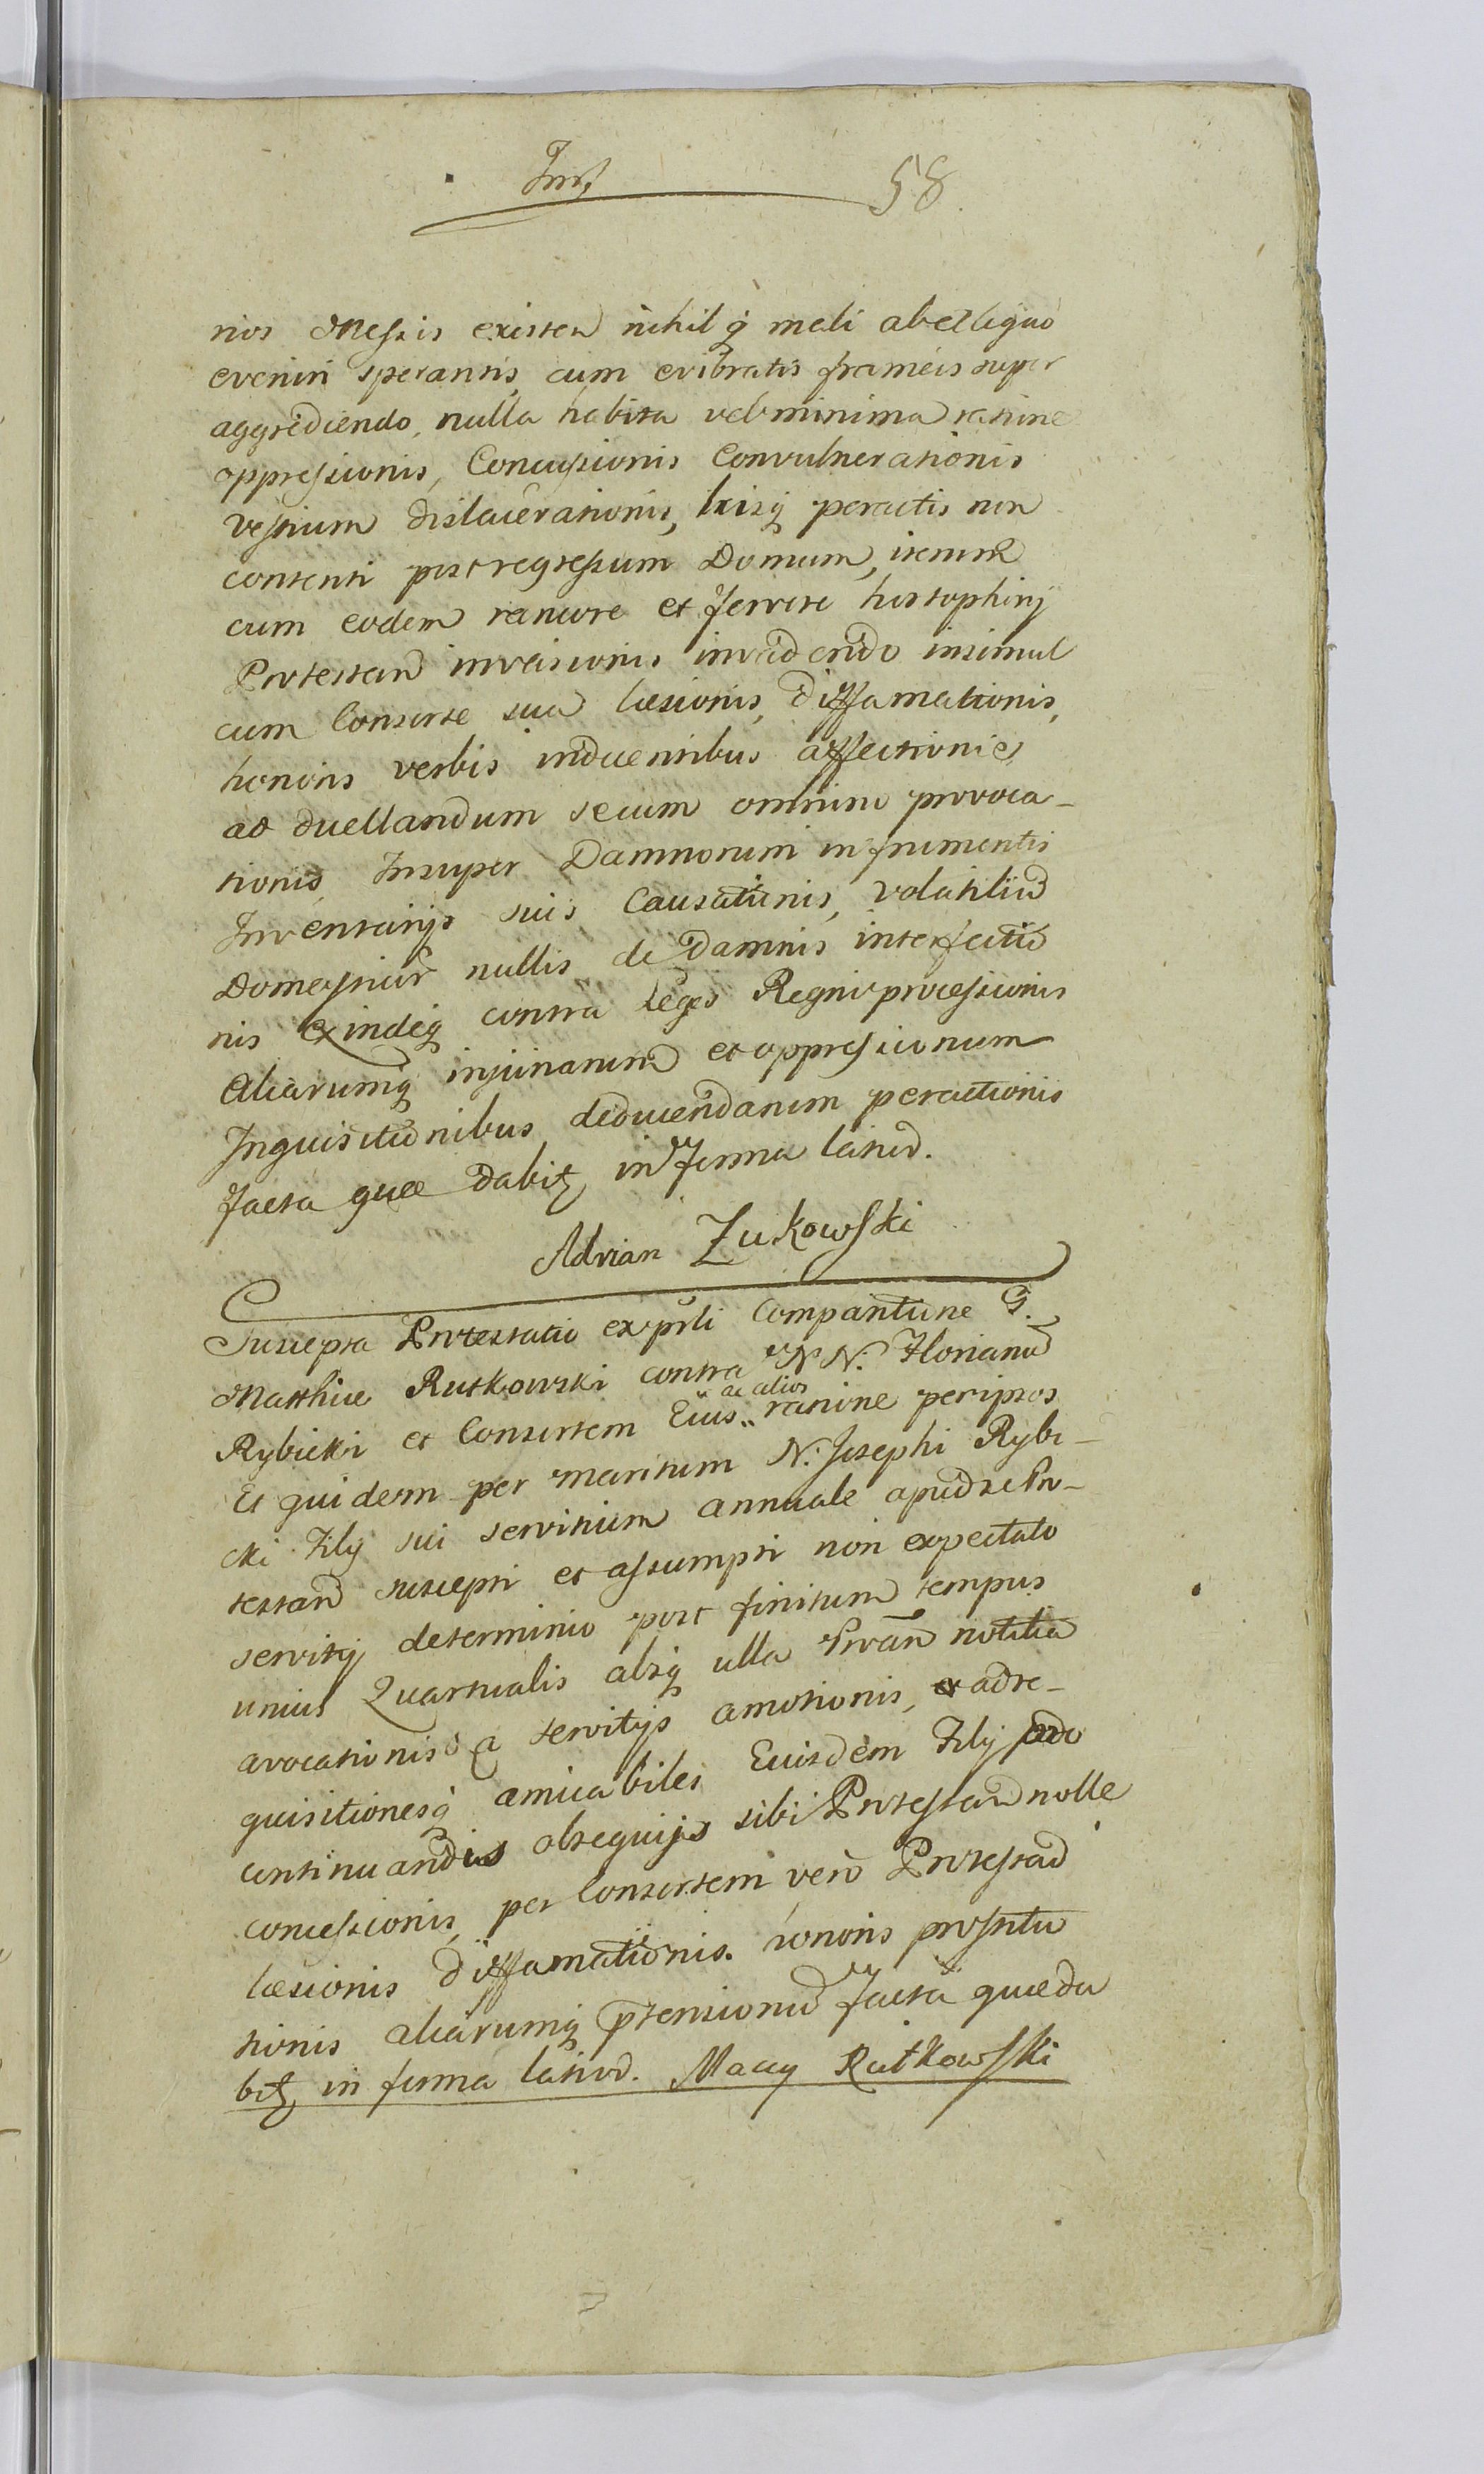 58.
nios Messis existen nihilq mali ab elliquo
eveniri sperantis, cum evibratis frameis super
aggrediendo, nulla habita vel minima ratione
oppressionis, Concussionis Convulnerationis
Vestium dislacerationis, hisq peractis non
contenti post regressum Domum, iterum
cum eodem rancore et fervore
Protestan invasionis invadendo insimul
cum Consorte sua læsionis, diffamationis,
honoris verbis inducentibus affectionis
ad duellandum secum omnino provoca-
tionis, Insuper Damnorum in frumentis
Inventarijs suis Causationis, volatiliu
Domesticor nullis de Damnis interfectio
nis exindeq contra leges Regni processionis
Aliarumq injuriarum et oppressionum
Inquisitionibus deducendarum peractionis
facta quæ dabit in forma latiod.
Adrian Zukowski
Suscepta Protestatio ex prsli Comparitione G.
Matthiæ Rutkowski contra NN. Florianu
Rybicki et Consortem Eius ac alios ratione per ipsos
Et quidem per maritum N. Josephi Rybi-
cki Filij sui servitium annuale apud se Pro-
testan suscepti et assumpti non expectato
servitij determinio post finitum tempus
unius Quartualis absq ulla notitia
avocationis a servitijs amotionis, et ad re-
quisitionesq amicabiles Euisdem Filij pro
continuandis obsequijs sibi Protestan nolle
concessionis, per Consortem vero Protestan
læsionis diffamationis honoris prostitu
tionis aliarumq ptensionu facta quæ da
bit in forma latiod. Macy Rutkowski